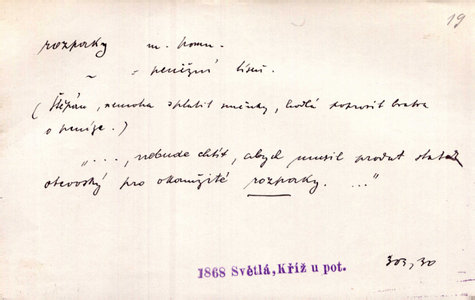 19
rozpaky m. pomn.
~ = peněžní tíseň.
(Štěpán, nemoha splatit směnky, hodlá poprosit bratra
o peníze.)
"..., nebude chtít, abych musil prodat statek
otcovský pro okamžité rozpaky. ..."
1868 Světlá, Kříž u pot.
303, 30